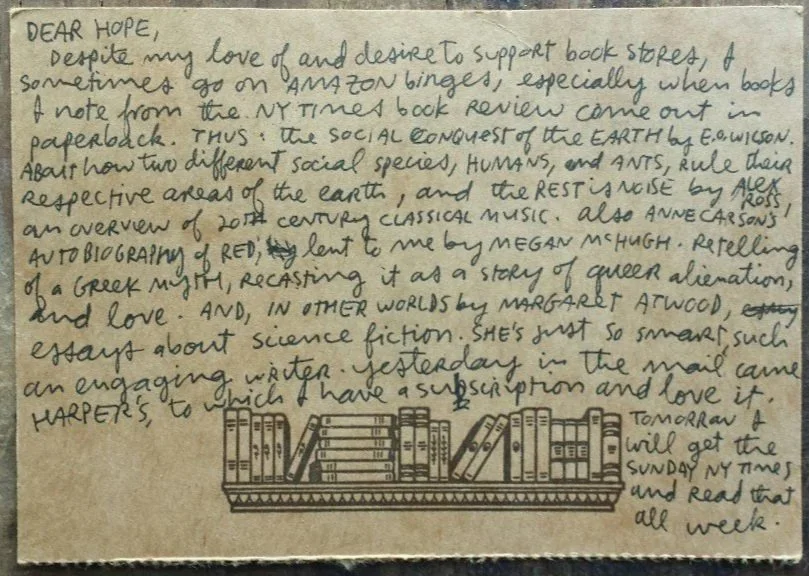 DEAR HOPE,
Despite my love of and desire to support book stores, I
sometimes go on AMAZON binges, especially when books
I note from the NY TIMES book REVIEW come out in
paperback. THUS: the SOCIAL CONQUEST of the EARTH by E.O. WILSON.
About how two different social species, HUMANS, and ANTS, RULE their
respective areas of the earth, and the REST is NOISE by ALEX
ROSS,
an overview of 20th CENTURY CLASSICAL MUSIC. also ANNE CARSON'S
AUTOBIOGRAPHY of RED, lent to me by MEGAN McHUGH. Retelling
of a GREEK MYTH, RECASTING it as a story of queer alienation,
and love. AND, IN OTHER WORLDS by MARGARET ATWOOD, essay
essays about science fiction. SHE'S just so smart, such
an engaging writer. yesterday in the mail came
HARPER'S, to which I have a subscription and love it.
TOMORROW I
will get the
SUNDAY NY TIMES
and read that
all week.